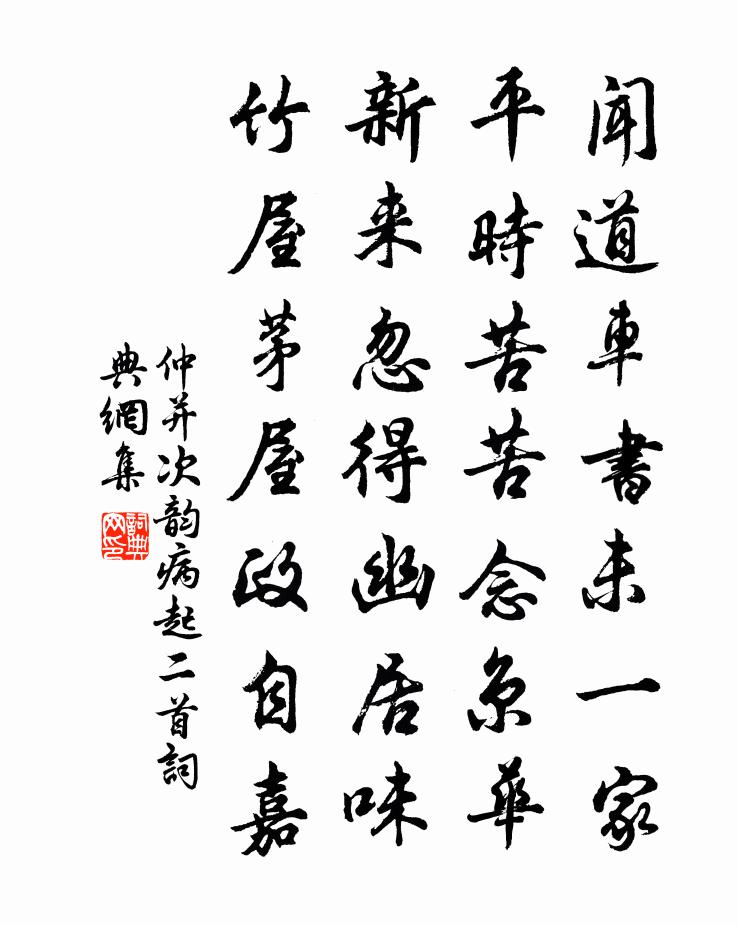 聞道車書未一家
平時苦苦念京華
新来忽得幽居味
竹屋茅屋政自嘉
仲并次韵病起二首詞
典網集
詞典网印